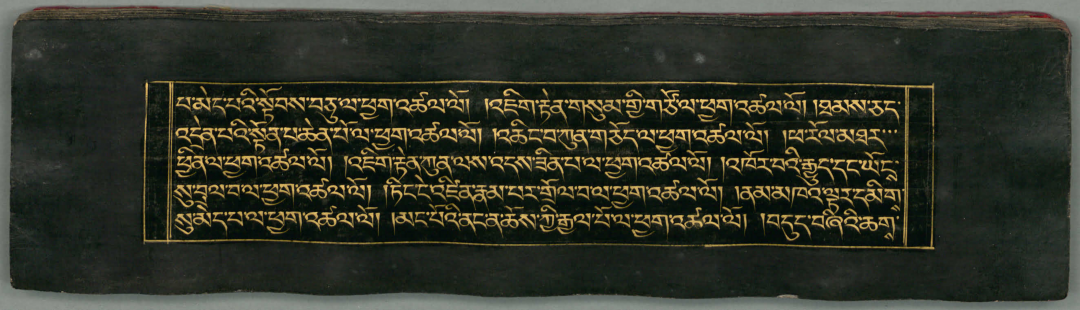 པ་མེད་པའི་སྟོབས་བཅུ་ལ་ཕྱག་འཚལ་ལོ། །འཇིག་རྟེན་གསུམ་གྱི་གཙོ་ལ་ཕྱག་འཚལ་ལོ། །ཐམས་ཅད་
འདྲེན་པའི་སྟོན་པ་ཆེན་པོ་ལ་ཕྱག་འཚལ་ལོ། །འཆིང་བ་ཀུན་གཅོད་ལ་ཕྱག་འཚལ་ལོ། །ཕ་རོལ་མཐར་
ཕྱིན་ལ་ཕྱག་འཚལ་ལོ། །འཇིག་རྟེན་ཀུན་ལས་འདས་ཟིན་པ་ལ་ཕྱག་འཚལ་ལོ། །འཁོར་བའི་རྒྱུད་དང་ཡོངསུ་
སུ་བྲལ་བལ་ཕྱག་འཚལ་ལོ། །ཏིང་ངེ་འཛིན་རྣམ་པར་གྲོལ་བ་ལ་ཕྱག་འཚལ་ལོ། །ནམ་མཁའི་ལྟར་དམིག་
སུ་མེད་པ་ལ་ཕྱག་འཚལ་ལོ། །མང་པོའི་ནང་ན་ཆོས་ཀྱི་རྒྱལ་པོ་ལ་ཕྱག་འཚལ་ལོ། །བདུད་བཞིའི་ཆགྲ་